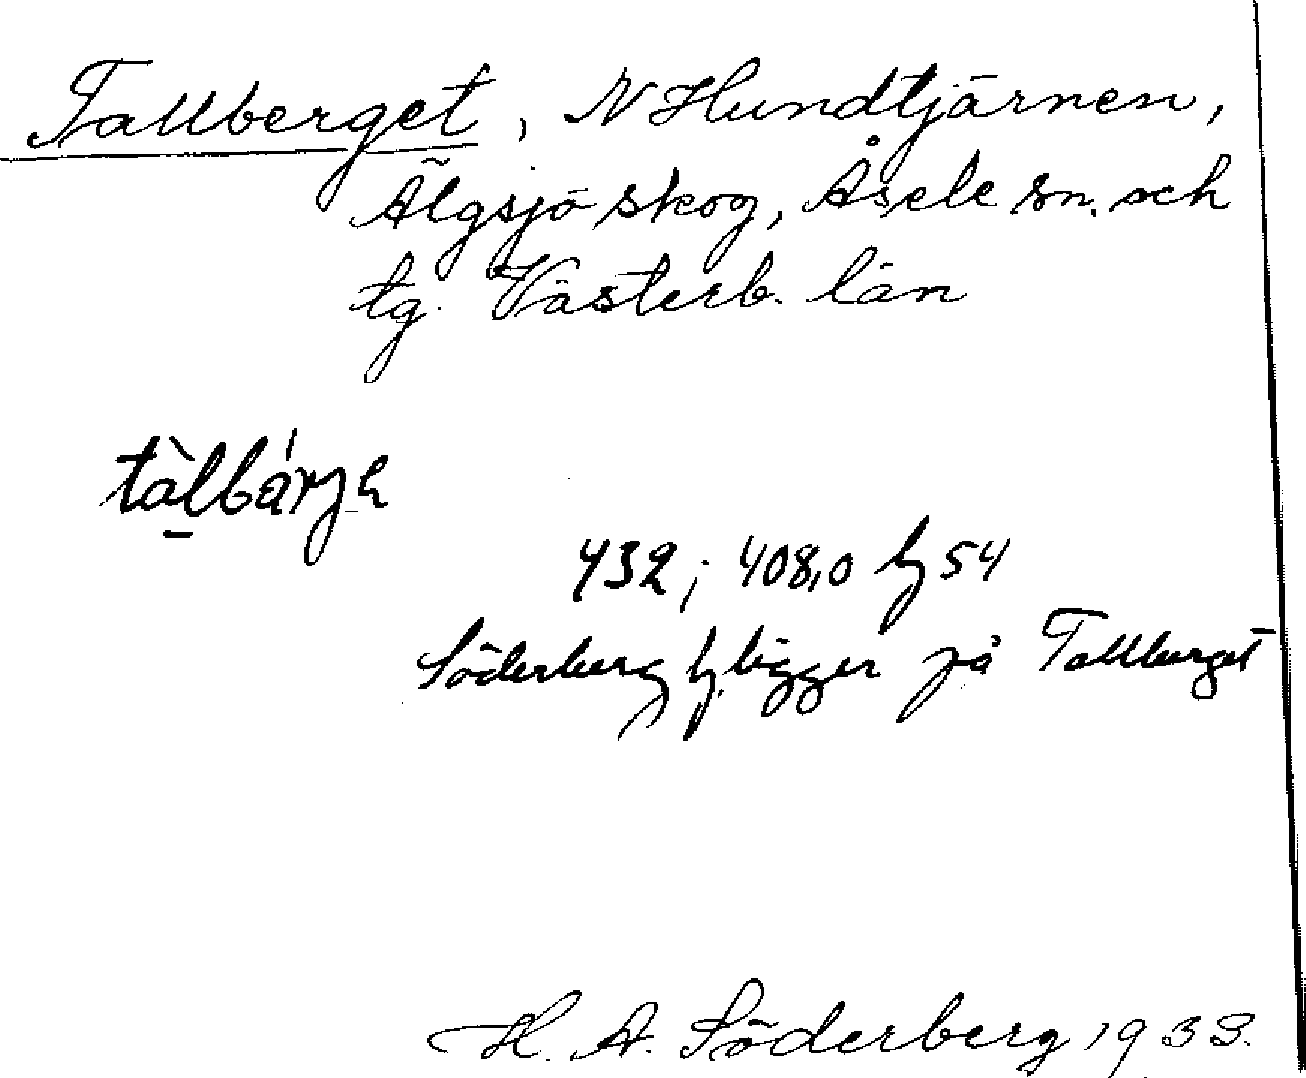 Tallberget, N Hundtjärnen,
Älgsjö skog, Åsele sn. och
tg. Västerb. län
tàlbárjₑ
432; 408,0 hj 54
Söderberg hj. ligger på Tallberget
H. A. Söderberg 1933.